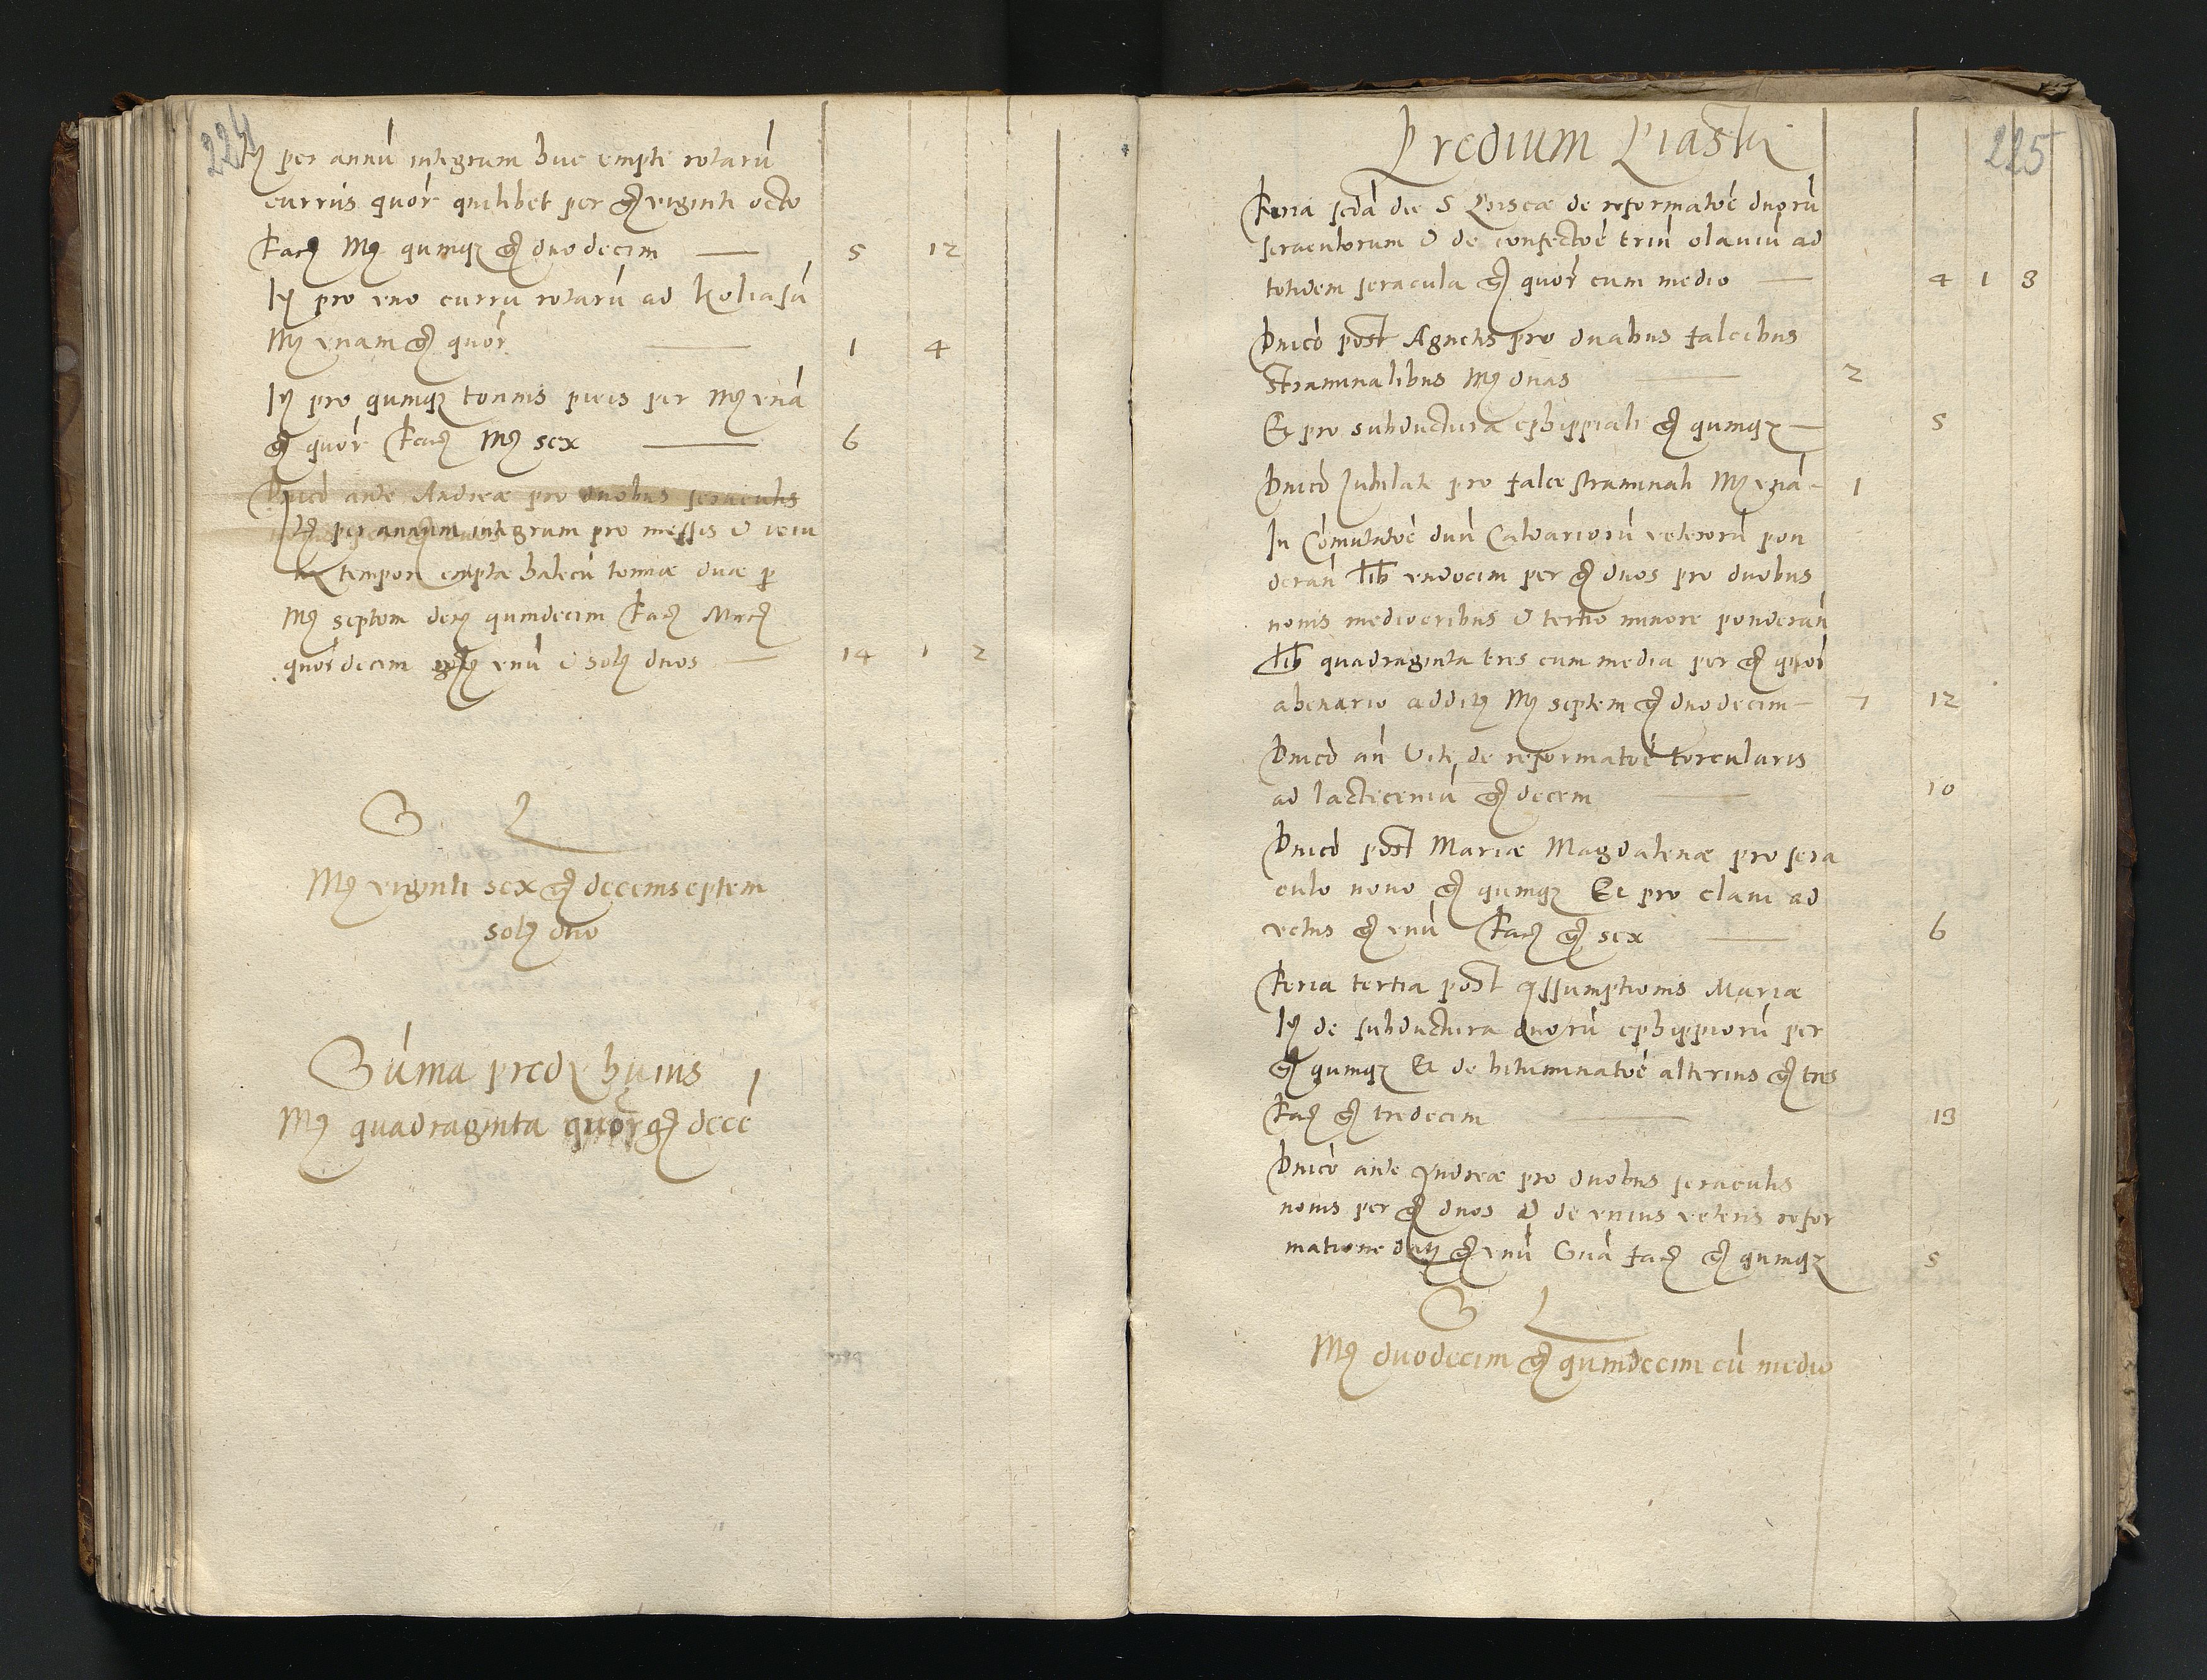 224
Itē per annū integrum huc empti rotarū
currus quōr quilibet per gř viginti octo
Facř Mř qumqȝ gř duodecim — 5 12
Itē pro vno curru rotarū ad koliasā
Mř vnam gř quōr — 1 4
Itē pro qumqȝ tonnis picis per Mř vnā
gř quōr Facř Mř sex — 6
Dnicō ante Andreæ pro duobus seraculis
Itē per annum integrum pro messis & ieiu
tempore emptæ halecū tonnæ duæ p
Mř septem derř qumdecim Facř Mrcř
quōrdecim vnū & solř duos — 14 1 2
S L
Mř viginti sex gř decemseptem
solř duo
Sūma predř huius
Mř quadraginta quōr gř decē
225
Predium Piasth
Feria scdā die S Priscæ de reformatōē duorū
seraculorum & de confectōē triū clauiū ad
totidem seracula gř quōr cum medio — 4 1 3
Dnicō post Agnetis pro duabus falcibus
straminalibus Mř duas — 2
Et pro subductura ephippiali gř qumqȝ — 5
Dnicō Jubilate pro falce straminali Mř vnā — 1
In Cōmutatōē duū Caldariorū veterorū pon
derāň lib vndecim per gř duos pro duobus
nouis mediocribus & tertio minore ponderāň
lib quadraginta tres cum media per gř quōr
ahenario additř Mř septem gř duodecim — 7 12
Dnicō añ Viti de reformatōē torcularis
ad lacticeniū gř decem — 10
Dnicō post Mariæ Magdalenæ pro sera
culo nouo gř qumqȝ Et pro claui ad
vetus gř vnū Facř gř sex — 6
Feria tertia post assumptionis Mariæ
Itē de subductura duorū ephippiorū per
gř qumqȝ Et de bituminatōē alterius gř tres
Facř gř tredecim — 13
Dnicō ante Andreæ pro duobus seraculis
nouis per gř duos & de vnius veteris refor
matione gř vnū facř gř qumqȝ 5
S L
Mř duodecim gř qumdecim cū medio